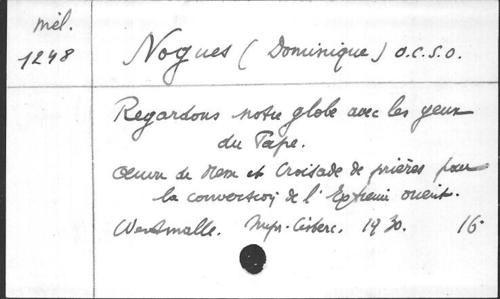 mél.
1248
Nogues (Dominique) O.C.S.O.
Regardons notre globe avec les yeux
du Pape.
Oeuvre de Mem et Croisade de prières pour
la conversion de l'Extrême orient.
Westmalle. Impr. Cisterc. 1930. 16°